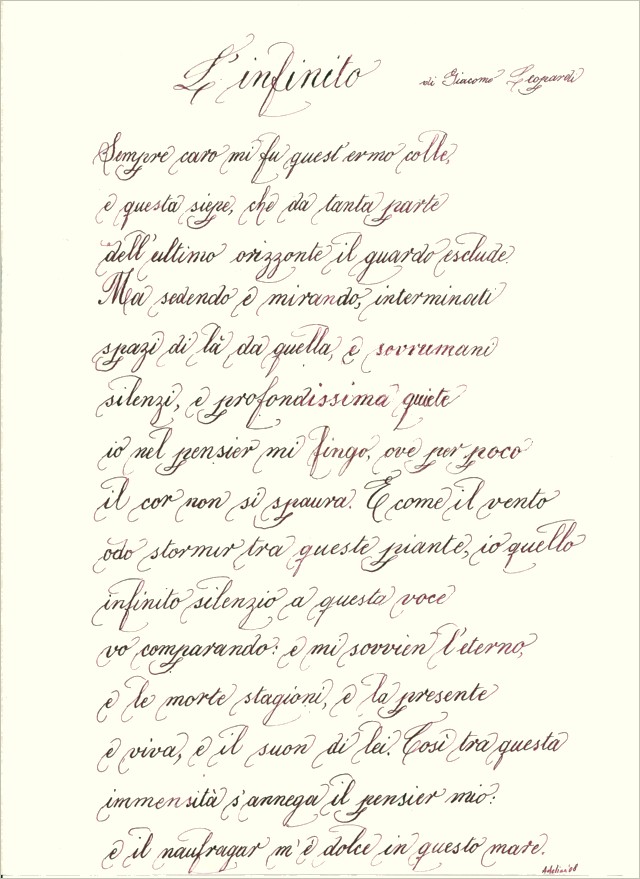 L'infinito
di Giacomo Leopardi
Sempre caro mi fu quest'ermo colle,
e questa siepe, che da tanta parte
dell'ultimo orizzonte il guardo esclude.
Ma sedendo e mirando, interminati
spazi di là da quella, e sovrumani
silenzi, e profondissima quiete
io nel pensier mi fingo, ove per poco
il cor non si spaura. E come il vento
odo stormir tra queste piante, io quello
infinito silenzio a questa voce
vo comparando: e mi sovvien l'eterno,
e le morte stagioni, e la presente
e viva, e il suon di lei. Così tra questa
immensità s'annega il pensier mio:
e il naufragar m'è dolce in questo mare.